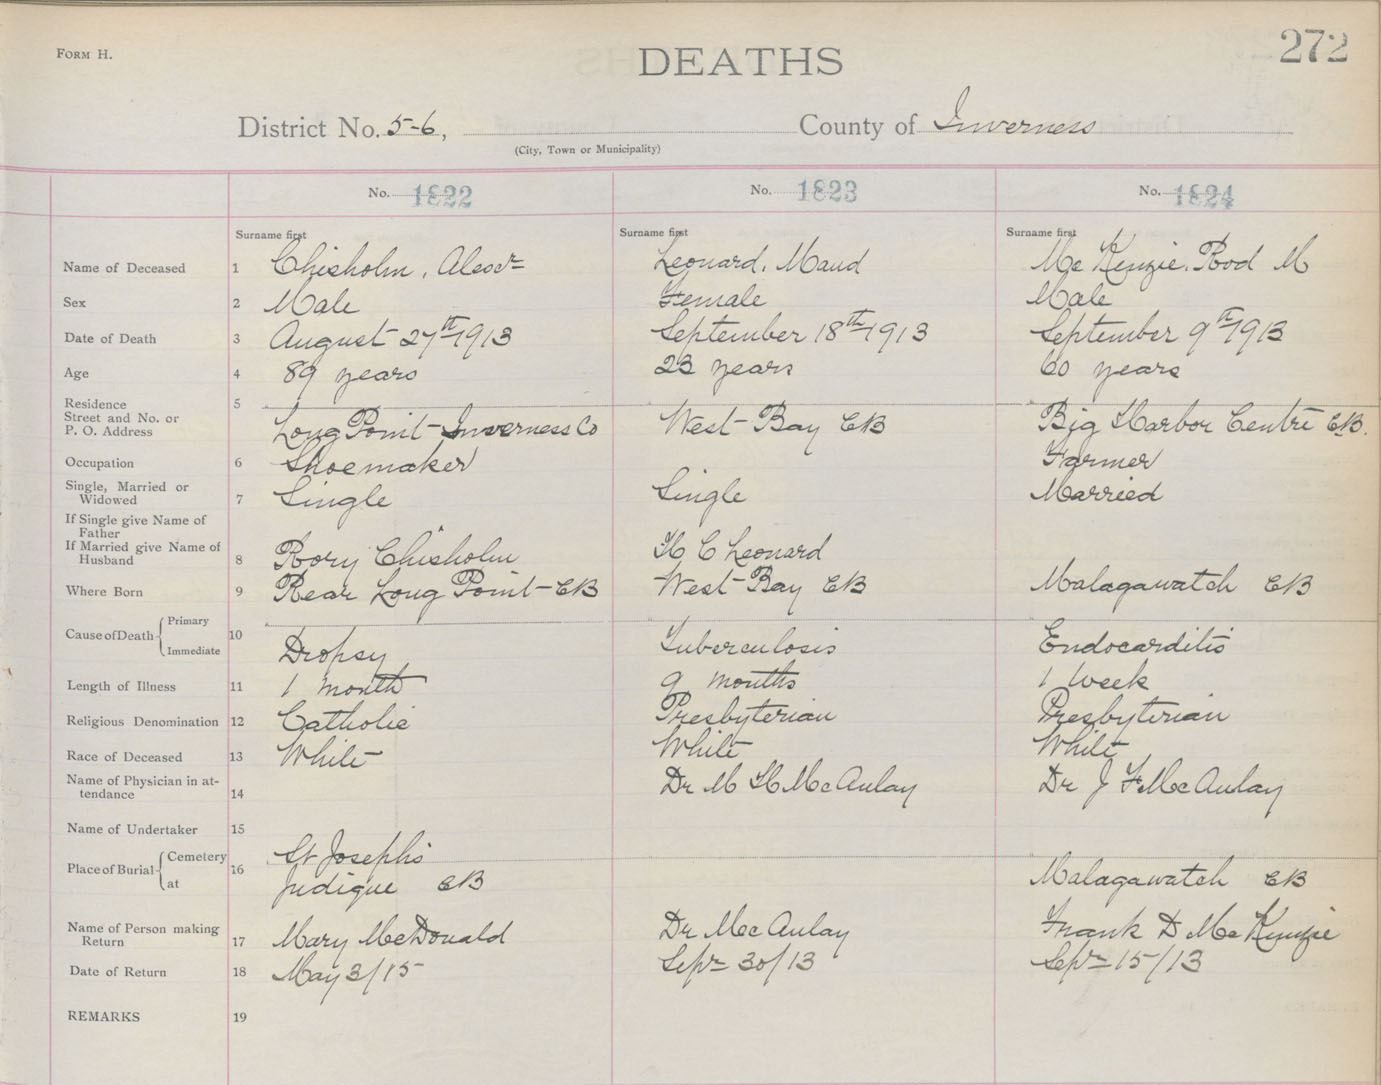 FORM H.
DEATHS
272
District No. 5-6,
County of Inverness
(City, Town or Municipality)
No. 1822
No. 1823
No. 1824
Surname first
Surname first
Surname first
Name of Deceased 1 Chisholm, Alexr Leonard, Maud McKenzie, Rod M
Sex 2 Male Female Male
Date of Death 3 August 27th 1913 September 18th 1913 September 9th 1913
Age 4 89 years 23 years 60 years
Residence 5
Street and No. or
P. O. Address Long Point Inverness Co West Bay CB Big Harbor Centre CB.
Occupation 6 Shoemaker Farmer
Single, Married or
Widowed 7 Single Single Married
If Single give Name of
Father
If Married give Name of
Husband 8 Rory Chisholm H C Leonard
Where Born 9 Rear Long Point CB West Bay CB Malagawatch CB
Cause of Death Primary
10
Immediate Dropsy Tuberculosis Endocarditis
Length of Illness 11 1 month 9 months 1 week
Religious Denomination 12 Catholic Presbyterian Presbyterian
Race of Deceased 13 White White White
Name of Physician in at-
tendance 14 Dr M H McAulay Dr J F McAulay
Name of Undertaker 15
Place of Burial Cemetery 16 St Josephs
at Judique CB Malagawatch CB
Name of Person making
Return 17 Mary McDonald Dr McAulay Frank D McKenzie
Date of Return 18 May 3/15 Sepr 30/13 Sepr 15/13
REMARKS 19